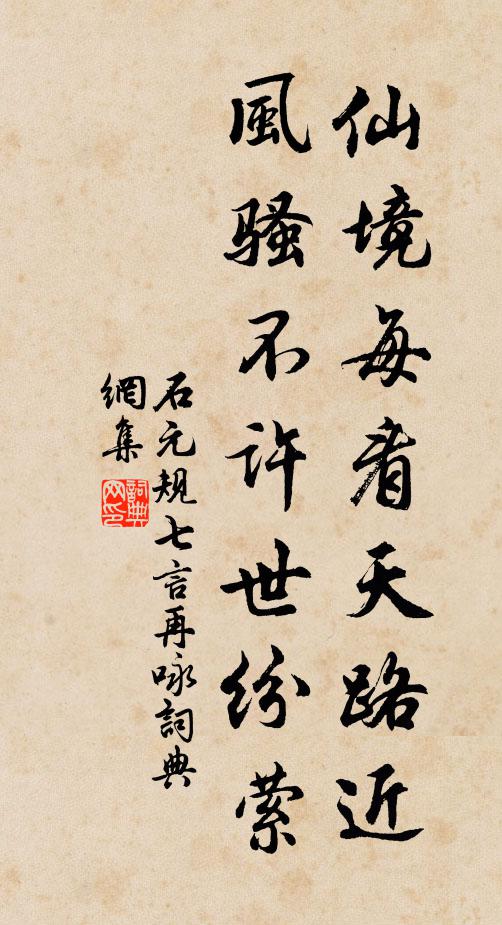 仙境每看天路近
風騷不許世紛縈
石元規七言再咏詞典
網集
詞典
网印